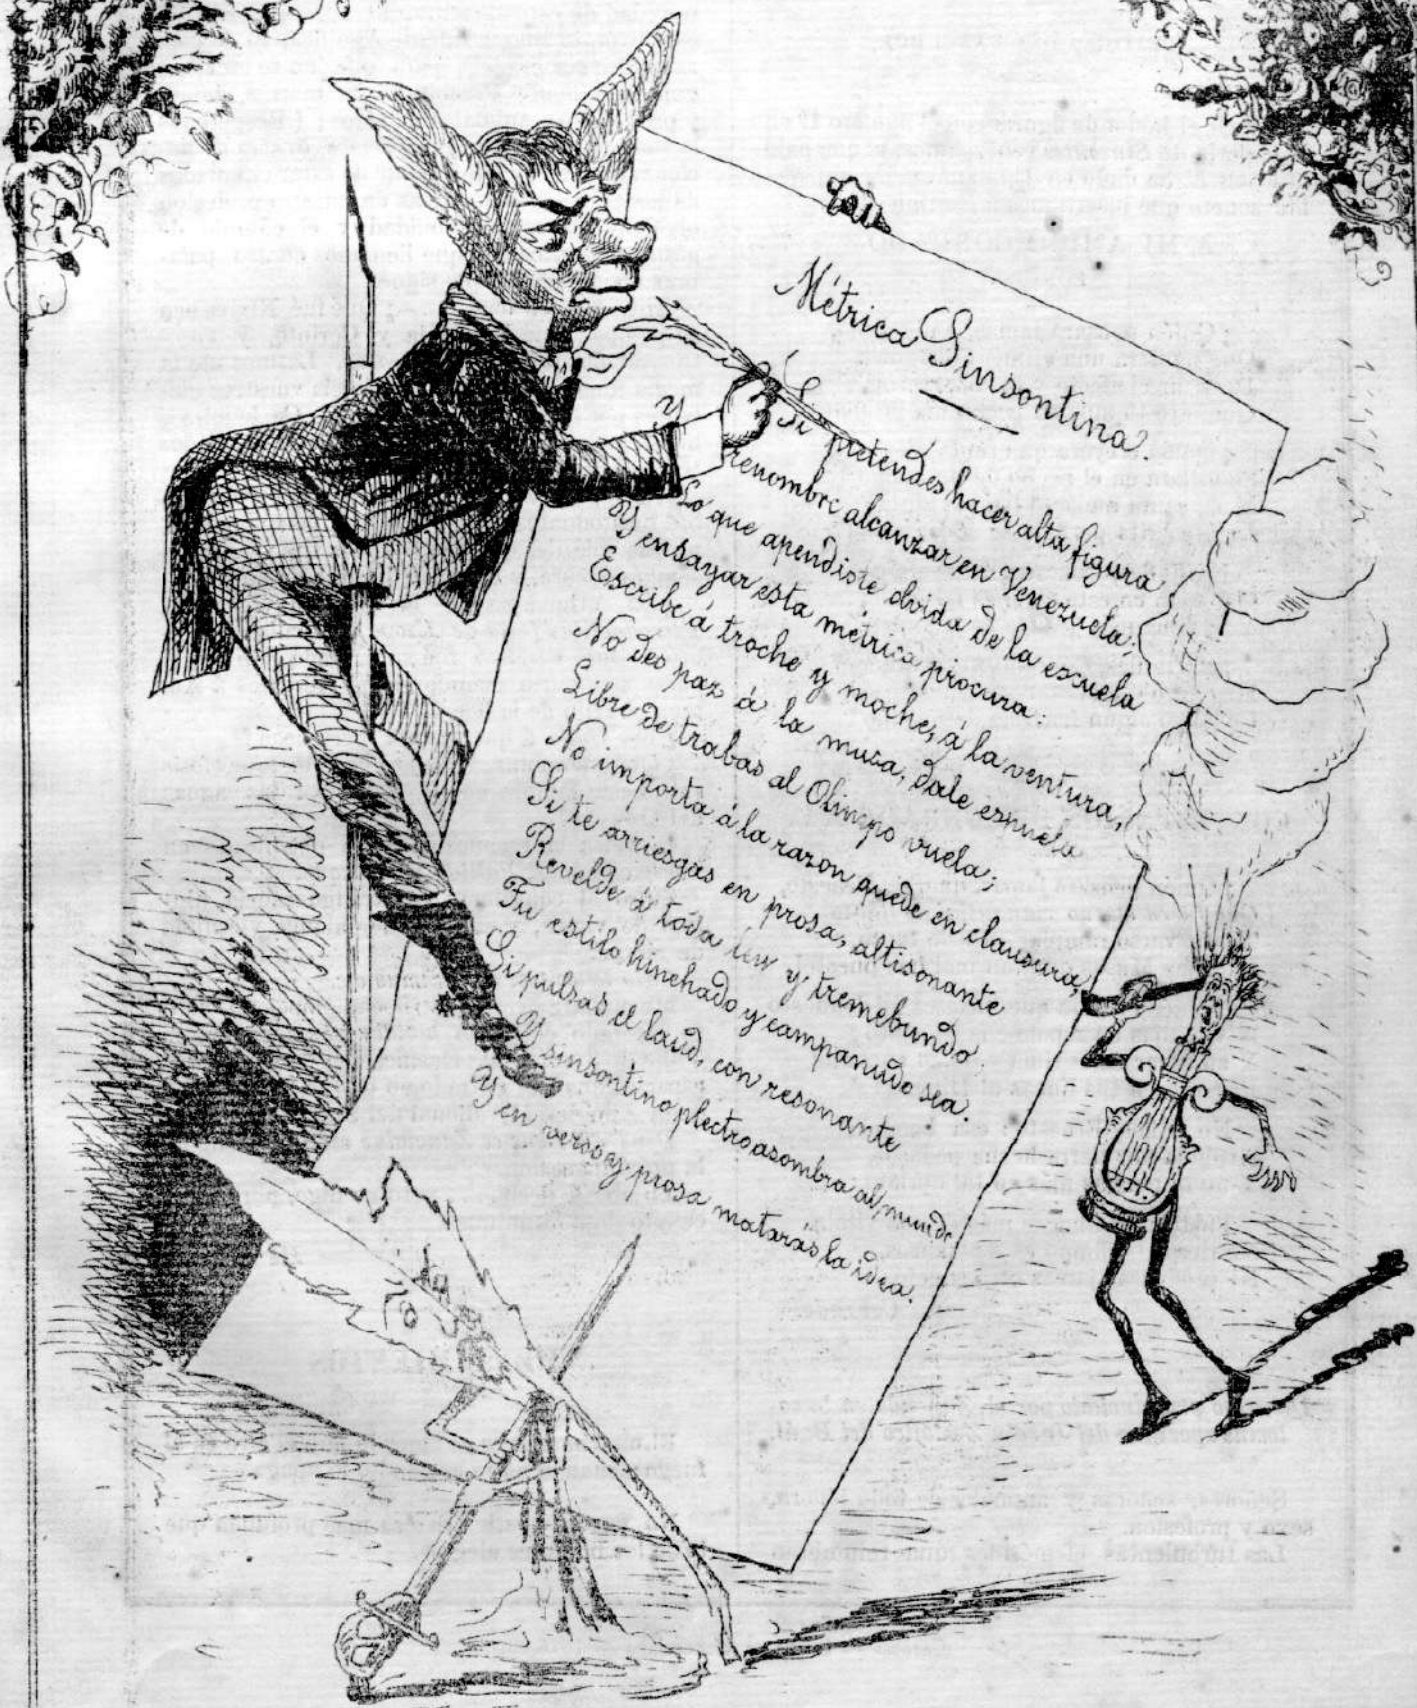 Métrica Sinsontina.
Si pretendes hacer alta figura
Y renombre alcanzar en Venezuela;
Lo que apendiste olvida de la escuela
Y ensayar esta métrica procura:
Escribe á troche y moche, á la ventura,
No des paz á la musa, dale esnuela
Libre de trabas al Olimpo vuela;
No importa á la razon quede en clausura,
Si te arriesgas en prosa, altisonante
Revelde á toda ley y tremebundo
Tu estilo hinchado y campanudo sea.
Si pulsas el laud, con resonante
Y sinsontino plectro asombra al mundo
Y en verso y prosa matarás la idea.